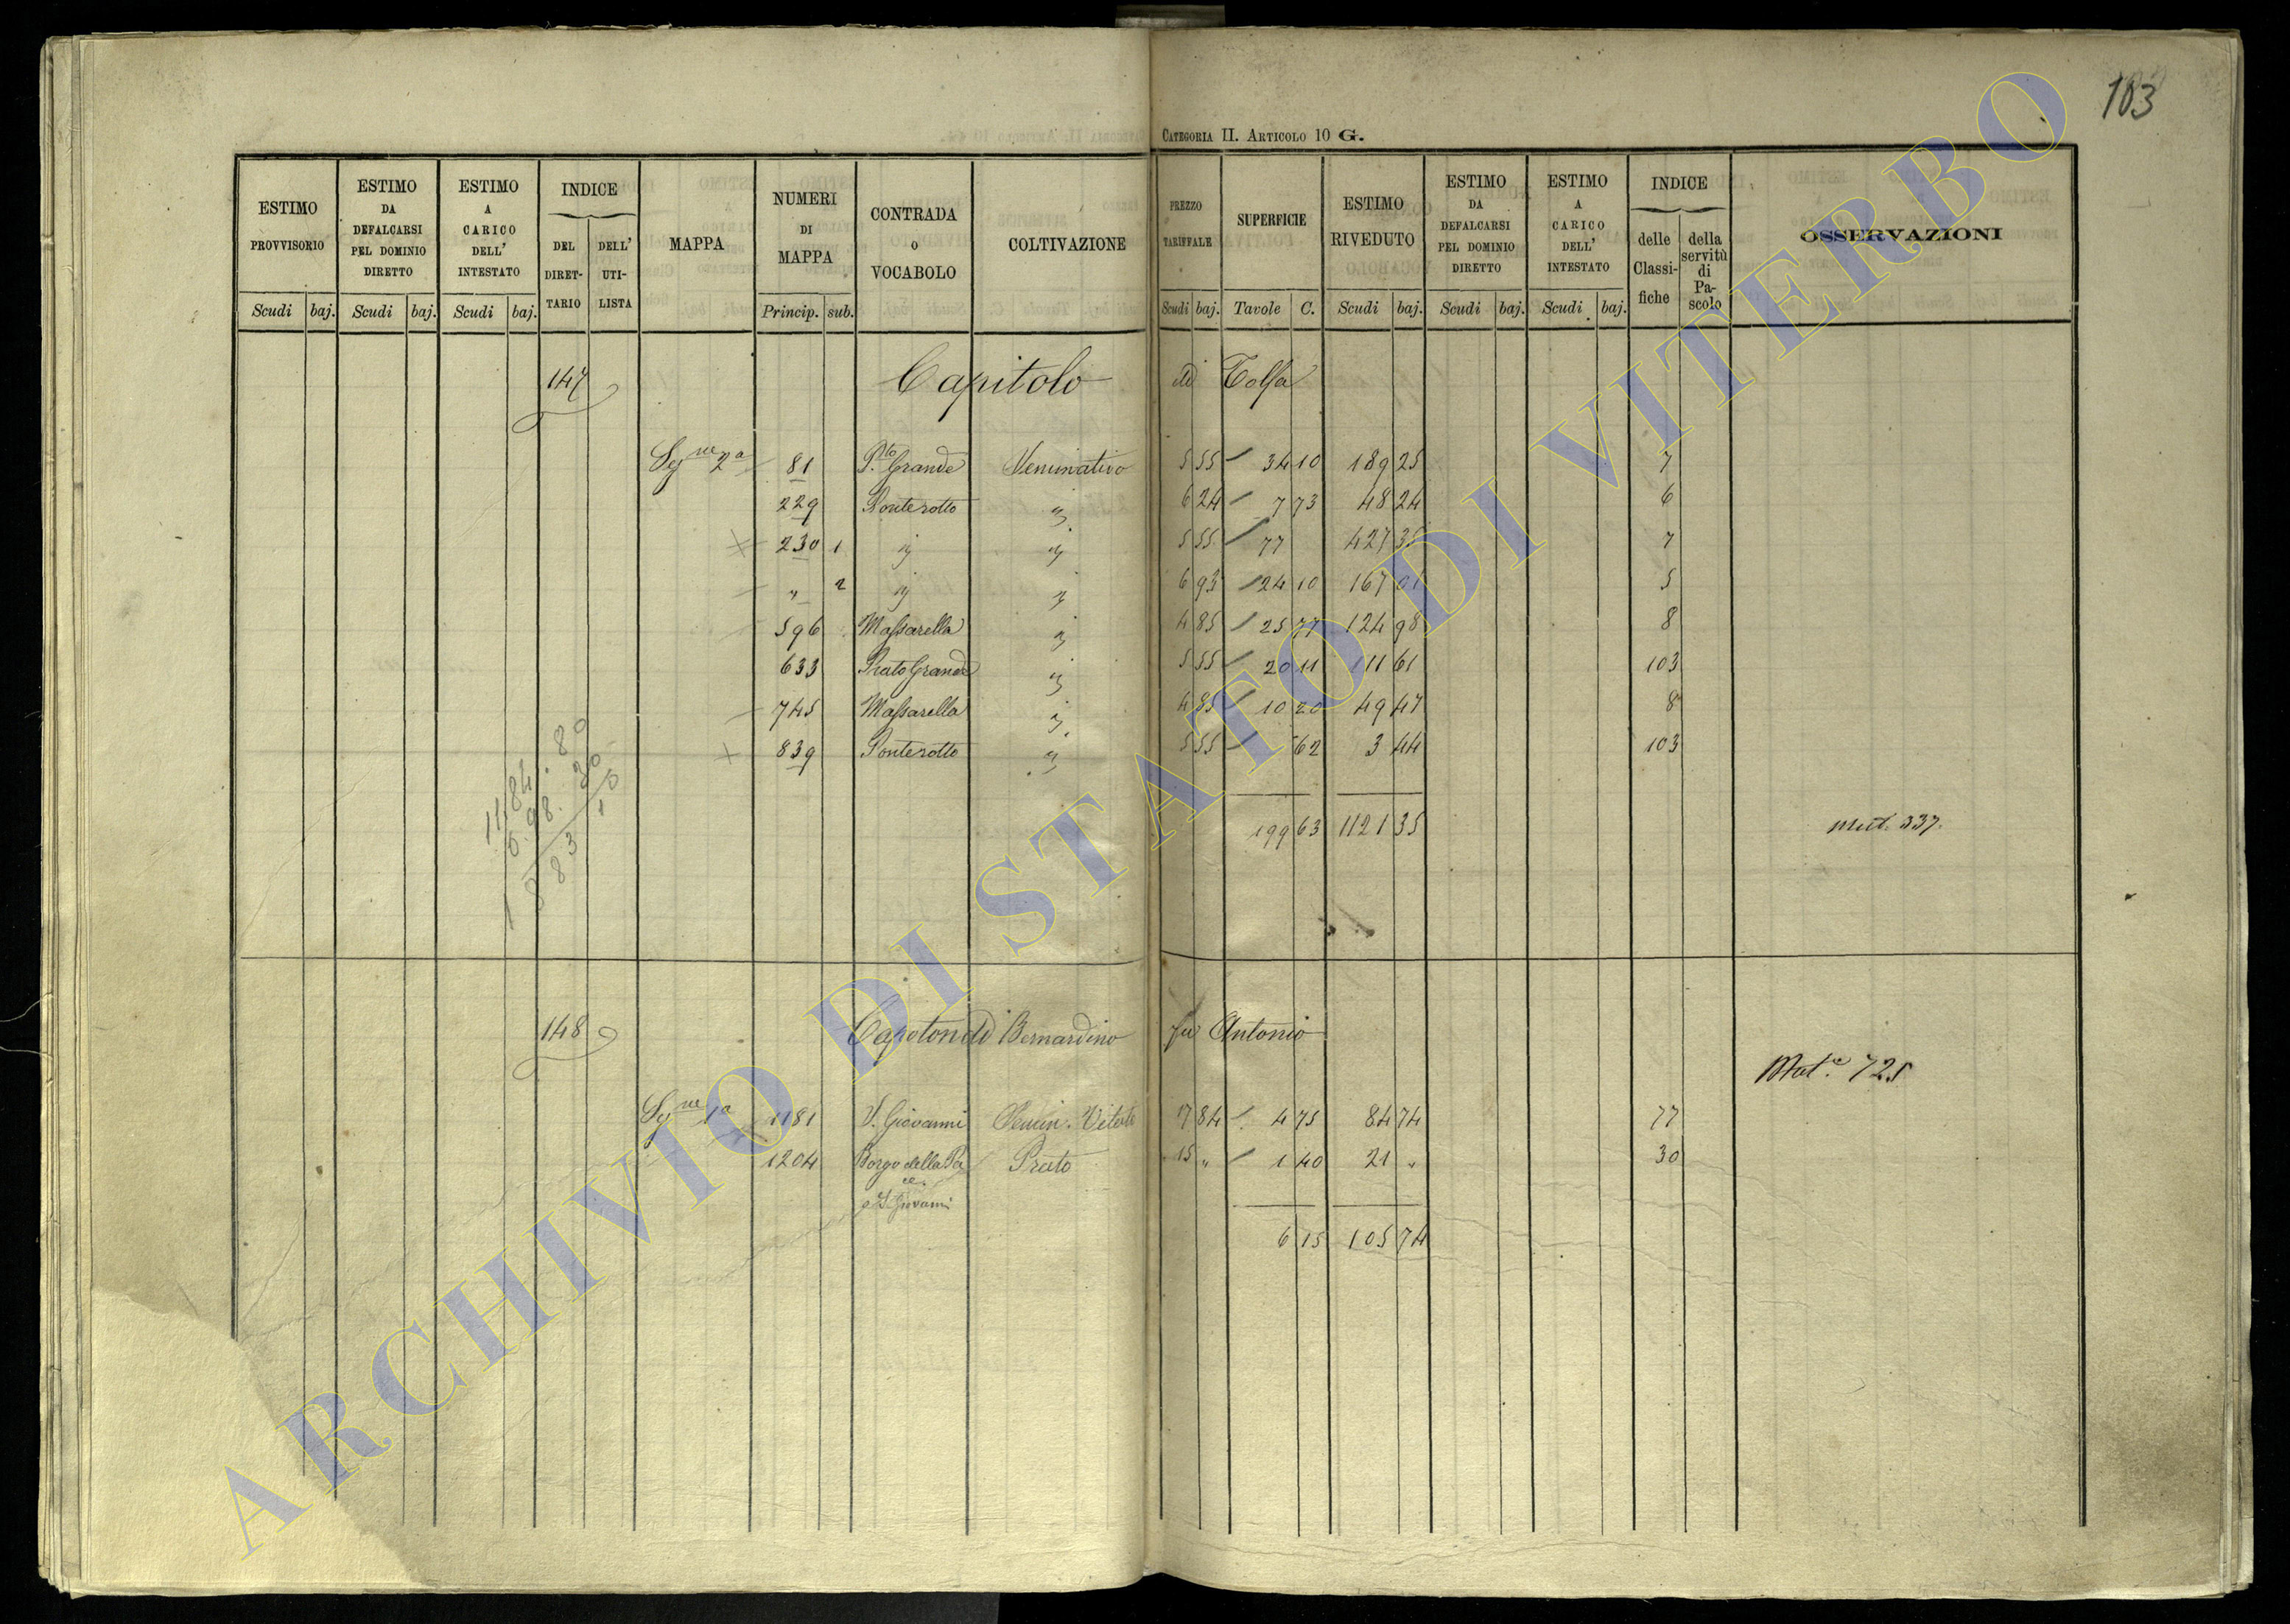 103
CATEGORIA II. ARTICOLO 10 G.
ESTIMO PROVVISORIO Scudi baj.
ESTIMO DA DEFALCARSI PEL DOMINIO DIRETTO Scudi baj.
ESTIMO A CARICO DELL' INTESTATO Scudi baj.
INDICE DEL DIRET- TARIO DELL' UTI- LISTA
MAPPA
NUMERI DI MAPPA Princip. sub.
CONTRADA O VOCABOLO
COLTIVAZIONE
PREZZO TARIFFALE Scudi baj.
SUPERFICIE Tavole C.
ESTIMO RIVEDUTO Scudi baj.
ESTIMO DA DEFALCARSI PEL DOMINIO DIRETTO Scudi baj.
ESTIMO A CARICO DELL' INTESTATO Scudi baj.
INDICE delle Classi- fiche della servitù di Pa- scolo
OSSERVAZIONI
147 Capitolo di Tolfa
Seg.ne 2a 81 P.to Grande Seminativo 5 55 34 10 189 25 7
229 Ponterotto " 6 24 7 73 48 24 6
230 1 " " 5 55 77 427 35 7
" 2 " " 6 93 24 10 167 01 5
596 Massarella " 4 85 25 77 124 98 8
633 Prato Grande " 5 55 20 11 111 61 103
745 Massarella " 4 85 10 20 49 47 8
839 Ponterotto " 5 55 62 3 44 103
199 63 1121 35 Mut. 337.
148 Capotondi Bernardino fu Antonio
Mut.e 725
Seg.ne 1a 1181 S. Giovanni Semin. Vitato 17 84 4 75 84 74 77
1204 Borgo della Pa Prato 15 " 1 40 21 " 30
ce
o S. Giovanni
6 15 105 74
ARCHIVIO DI STATO DI VITERBO